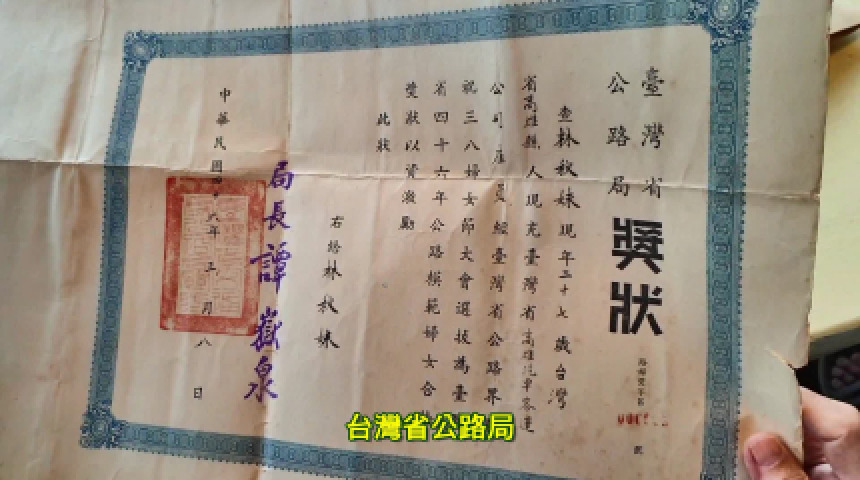 臺灣省
公路局
獎狀
查林秋妹現年三十七歲台灣
省高雄縣人現充臺灣省高雄汽車客運
公司雇員經臺灣省公路界
祝三八婦女節大會選拔為臺
省四十六年公路模範婦女合
獎狀以資激勵
此狀
右給林秋妹
局長譚嶽泉
中華民國四十六年三月八日
台灣省公路局